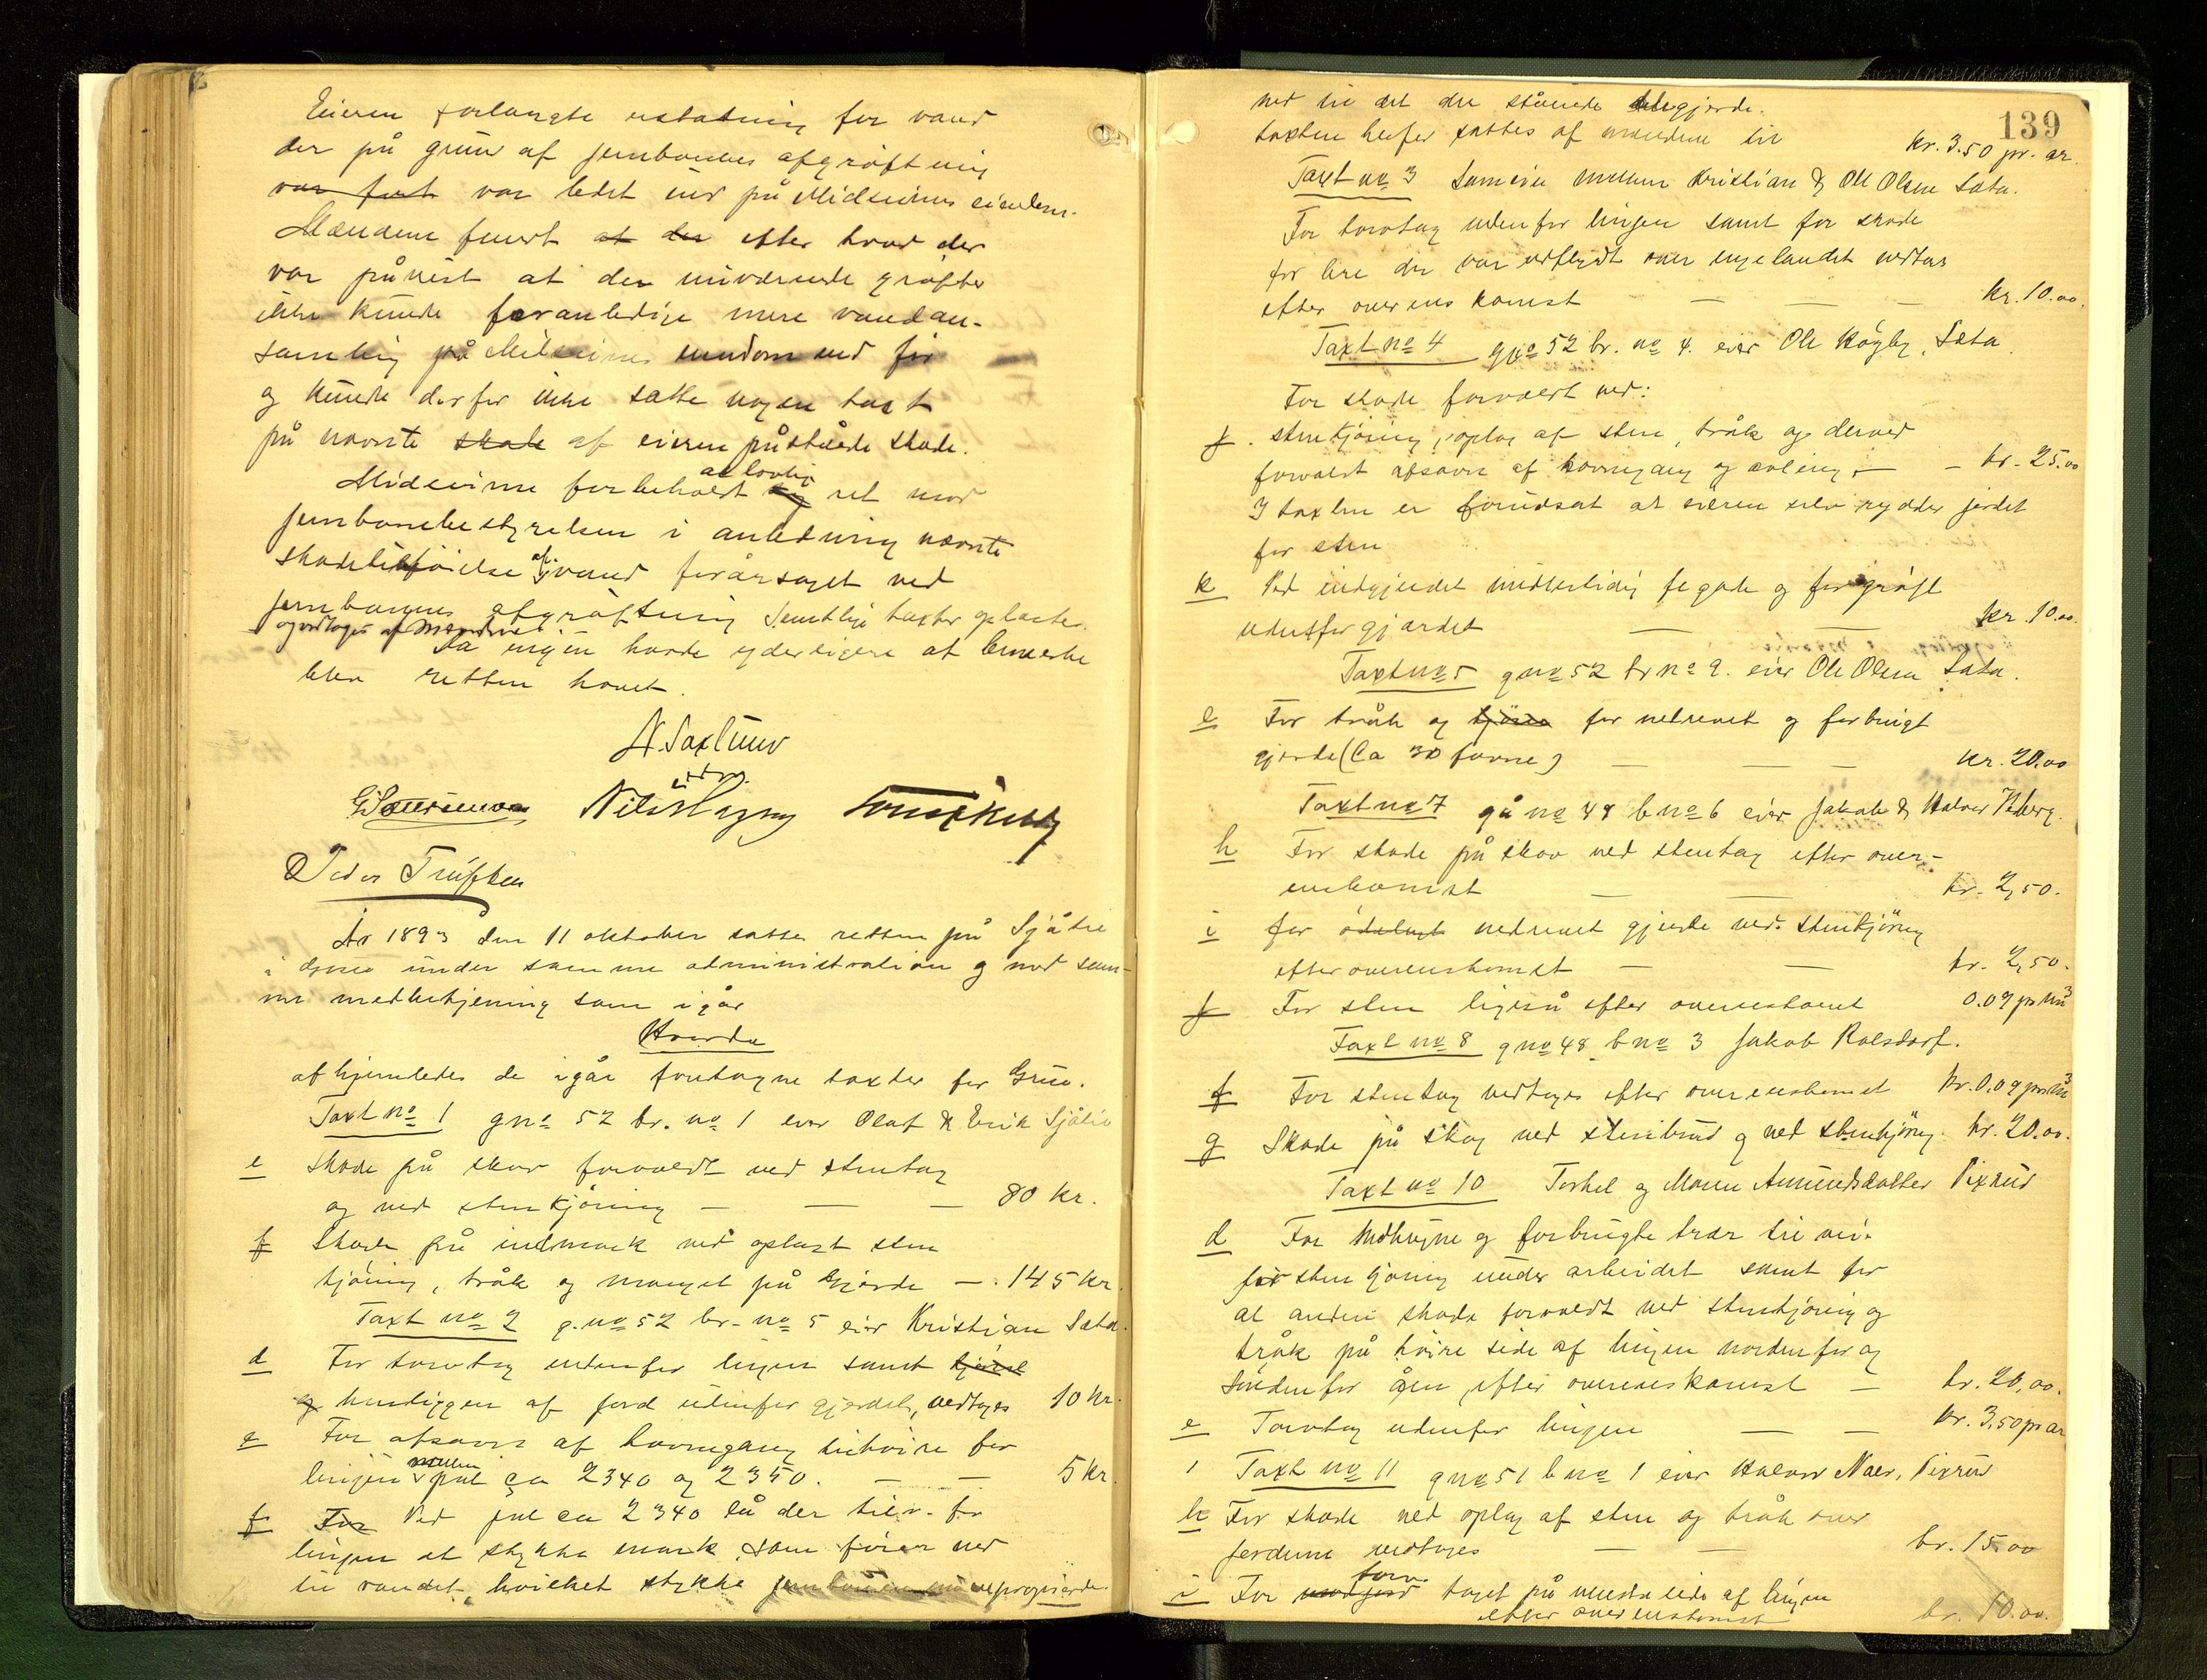 Eieren forlangte erstatning for vand
der på grund af jernbanens afgrøftning
var ført var ledet ind på Midseines eiendom.
Mændene fandt at der efter hvad der
var påvist at den nuværende grøfter
ikke kunde foranledige mere vandan-
samling på Midseines eiendom end før
og kunde derfor ikke sætte nogen taxt
på nævnte skade af eieren påståede skade.
Midseine forbeholdt sig al lovlig ret mod
jernbanebestyrelsen i anledning nævnte
skadetilføielse af vand forårsaget ved
jernbanens afgrøftning Samtlige taxter oplæstes
og vedtoges af Mændene.
Da ingen havde yderligere at bemerke
blev retten hævet.
N. Saxlund
Peder Trulsen
År 1893 den 11 oktober sattes retten på Sjåtil
i Grue under samme administration og med sam-
me medbetjening som igår
Hvorda
afhjemledes de igår foretagne taxter for Grue.
Taxt no 1 gno 52 br. no 1 eier Olaf & Erik Sjåtil
e Skade på skov forvoldt ved stentag
og ved stenkjøring — — — 80 kr.
f Skade på indmark ved oplagt sten
kjøring, tråk og manget på Gjærde — 145 kr.
Taxt no 2 g. no 52 br. no 5 eier Kristian Sæta.
d For torvtag udenfor linjen samt kjørsel
og henliggen af jord udenfor gjerdet, vedtoges 10 kr.
e For afsavn af havnegang tilhøire for
linjen mellem pæl ca 2340 og 2350. — — 5 kr.
f For Ved pæl ca 2340 lå der tilv. for
linjen et stykke mark som fører ned
til vandet, hvilket stykke
139
ned til det der stående gjerde.
taxten herfor sattes af mændene til kr. 3.50 pr. ar.
Taxt no 3 Sameie mellem Kristian & Ole Olsen Sæta.
For torvtag udenfor linjen samt for skade
for lere der var udflydt over engelandet vedtas
efter overenskomst — — — kr. 10.00.
Taxt no 4 gno 52 br. no 4. eier Ole Høgby, Sæta.
For skade forvoldt ved:
j. stenkjøring, oplag af sten, tråk og derved
forvoldt afsavn af havnegang og avling. — — kr. 25.00
I taxten er forudsat at eieren selv rydder jordet
for sten
k Ved indgjerdet midlertidig fegade og for grøft
udenfor gjærdet — — kr. 10.00.
Taxt no 5 gno 52 br no 9. eier Ole Olsen Sæta.
e For tråk og kjøre for nedrevet og forbrugt
gjerde (Ca 30 favne) — — — kr. 20.00
Taxt no 7 gå no 48 b no 6 eier Jakob & Halvor
h For skade på skov ved stentag efter over-
enskomst — — kr. 2,50.
i for ødelagt nedrevet gjerde ved stenkjøring
efter overenskomst — — kr. 2,50.
j For sten ligeså efter overenskomst 0.09 pr m3
Taxt no 8 gno 48 b no 3 Jakob Rolsdorf.
f For stentag vedtages efter overenskomst kr. 0.09 pr m3
g Skade på skog ved stenbrud og ved stenkjøring. kr. 20.00.
Taxt no 10 Torkel og Maren Amundsdatter Pixrud
d For nedhugne og forbrugte trær til vei.
for stenkjøring under arbeidet samt for
al anden skade forvoldt ved stenkjøring og
tråk på høire side af linjen nordenfor og
søndenfor åen, efter overenskomst — kr. 20,00.
e Torvtag udenfor linjen — — kr. 3,50 pr ar
Taxt no 11 gno 51 b no 1 eier Halvor Næs, Pixrud
h For skade ved oplag af sten og tråk over
jorderne vedtages — — kr. 15.00
i For torv taget på venstre side af linjen
efter overenskomst kr. 10.00.